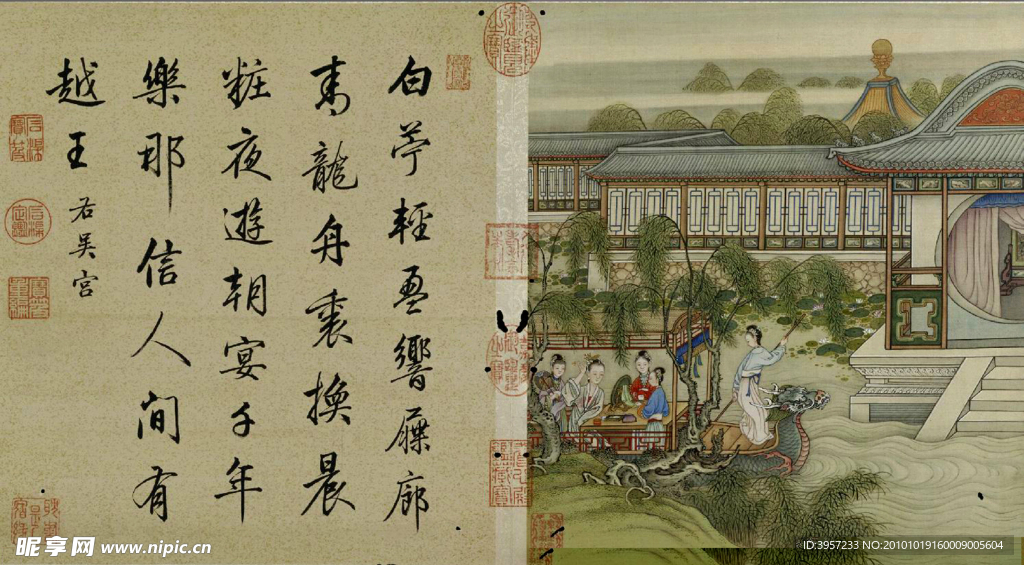 白苧輕盈響屧廊
青龍舟裏換晨
粧夜遊朝宴千年
樂那信人間有
越王 右吳宮
昵享网 www.nipic.cn
ID:3957233 NO:20101019160009005604